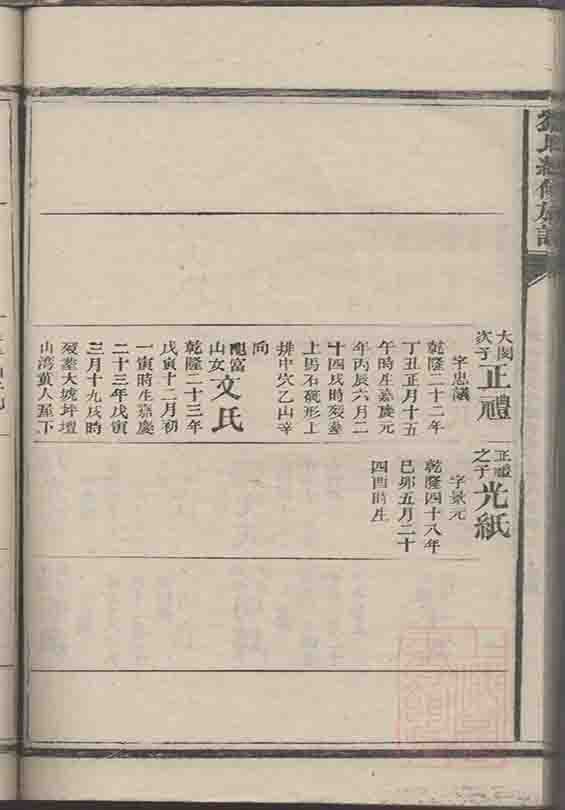 族譜
大閔次子正禮
字忠議
乾隆二十二年
丁丑正月十五
午時生嘉慶元
年丙辰六月二
十四戌時歿葬
上馬石硯形上
排中穴乙山辛
向
配富山女文氏
乾隆二十三年
戊寅十二月初
一寅時生嘉慶
二十三年戊寅
三月十九戌時
歿葬大坪壇
山灣黃人屋下
正禮之子光紙
字景元
乾隆四十八年
己卯五月二十
四酉時生